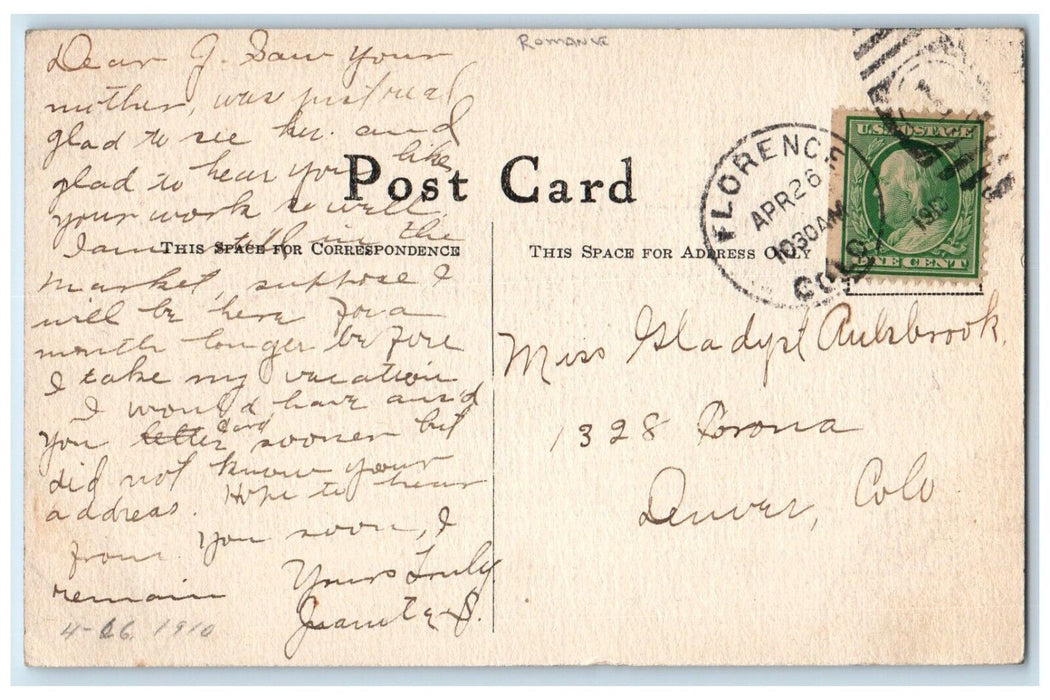 Romance
Dear G. Saw your
mother, was just real
glad to see her. and
glad to hear you like
your work so well.
I am still in the
market, suppose I
will be here for a
month longer before
I take my vacation
I would have
you letter card sooner but
did not know your
address. Hope to hear
from you soon, I
remain
Yours Truly
Juanita S.
4-26 1910
Post Card
This Space for Correspondence
This Space for Address Only
FLORENCE
APR 26
1030AM
COLO
1910
U.S. POSTAGE
ONE CENT
Miss Gladys Aulsbrook.
1328 Corona
Denver, Colo